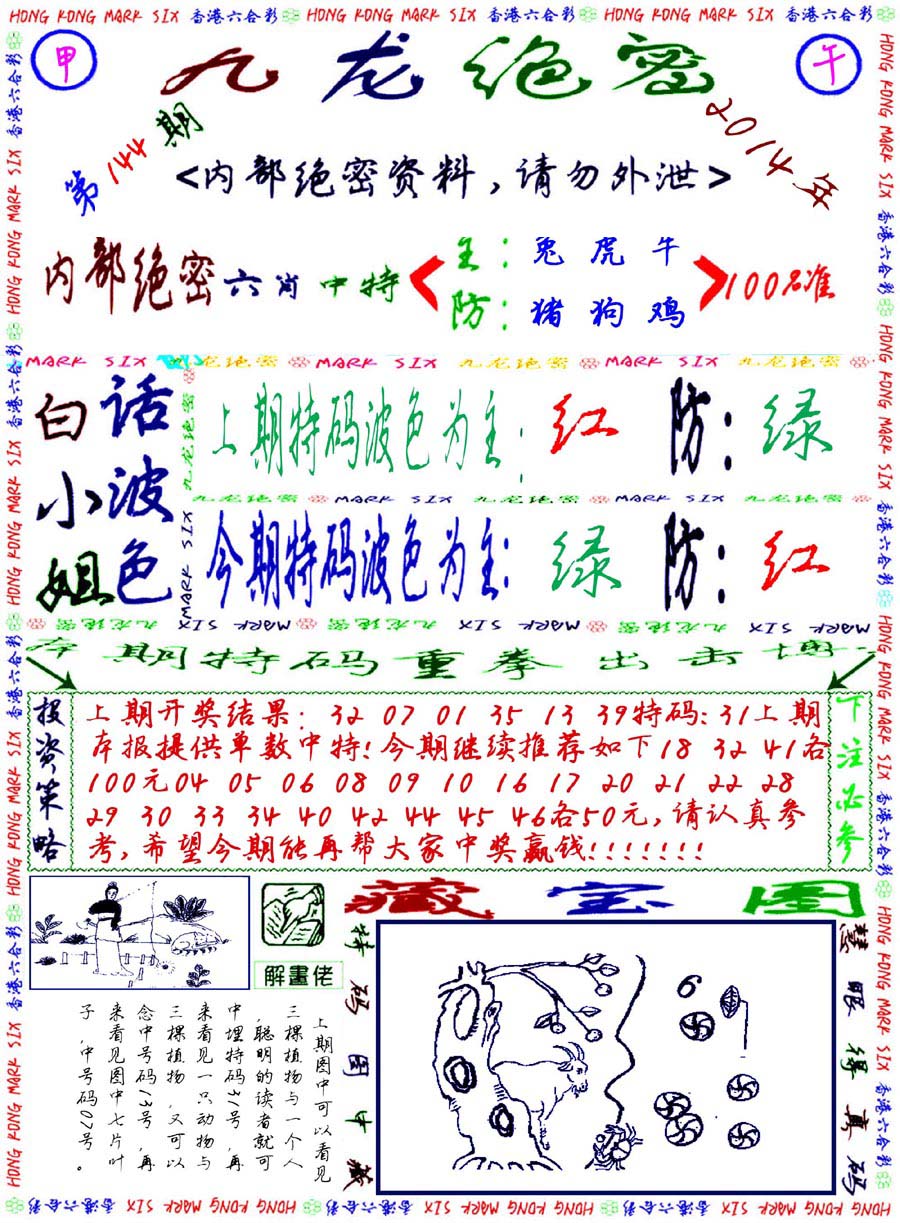 HONG KONG MARK SIX 香港六合彩 HONG KONG MARK SIX 香港六合彩 HONG KONG MARK SIX 香港六合彩
甲
九龙绝密
午
第144期
2014年
<内部绝密资料,请勿外泄>
内部绝密六肖中特
主: 兔 虎 牛
防: 猪 狗 鸡
100%准
MARK SIX 九龙绝密 MARK SIX 九龙绝密 MARK SIX 九龙绝密
白小姐
话波色
上期特码波色为主: 红 防: 绿
九龙绝密 MARK SIX 九龙绝密 MARK SIX 九龙绝密
今期特码波色为主: 绿 防: 红
九龙绝密 MARK SIX 九龙绝密 MARK SIX 九龙绝密 MARK SIX
本期特码重拳出击博
投资策略
上期开奖结果: 32 07 01 35 13 39特码:31上期
本报提供单数中特!今期继续推荐如下18 32 41各
100元04 05 06 08 09 10 16 17 20 21 22 28
29 30 33 34 40 42 44 45 46各50元,请认真参
考,希望今期能再帮大家中奖赢钱!!!!!!!
下注必参
解畫佬
藏宝图
上期图中可以看见
三棵植物与一个人
,聪明的读者就可
中埋特码31号,再
来看见一只动物与
三棵植物,又可以
念中号码13号,再
来看见图中七片叶
子,中号码07号。
特码图中藏
6
慧眼得真码
HONG KONG MARK SIX 香港六合彩 HONG KONG MARK SIX 香港六合彩 HONG KONG MARK SIX 香港六合彩